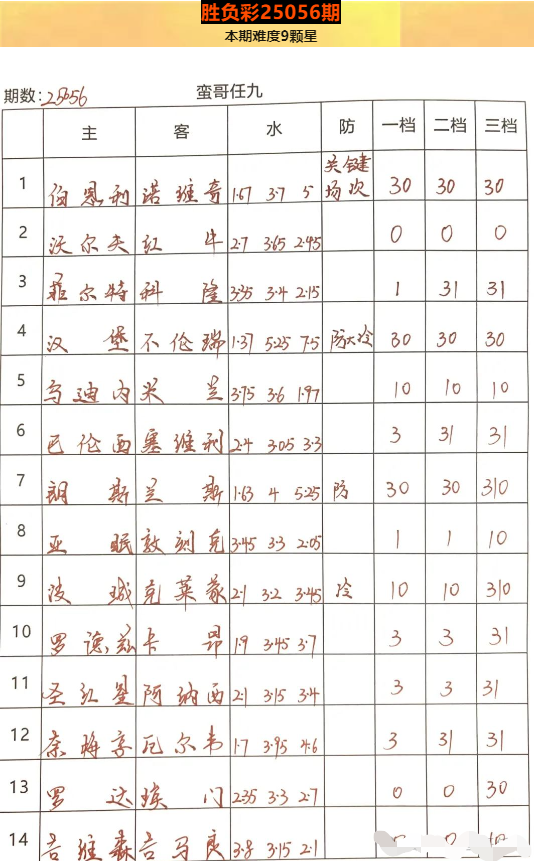 胜负彩25056期
本期难度9颗星
期数:25056 蛮哥任九
主 客 水 防 一档 二档 三档
1 伯恩利 诺维奇 1.67 3.7 5 关键场次 30 30 30
2 沃尔夫 红牛 2.7 3.65 2.45 0 0 0
3 菲尔特 科隆 3.35 3.4 2.15 1 31 31
4 汉堡 不伦瑞 1.37 5.25 7.5 防大冷 30 30 30
5 乌迪内 米兰 3.75 3.6 1.97 10 10 10
6 巴伦西 塞维利 2.4 3.05 3.3 3 31 31
7 朗斯 兰斯 1.63 4 5.25 防 30 30 310
8 亚眠 敦刻克 3.45 3.3 2.05 1 1 10
9 波城 克莱蒙 2.1 3.2 3.45 冷 10 10 310
10 罗德兹 卡昂 1.9 3.45 3.7 3 3 31
11 圣红星 阿纳西 2.1 3.15 3.4 3 3 31
12 奈梅亨 瓦尔韦 1.7 3.95 4.6 3 31 31
13 罗达 埃门 2.35 3.3 2.7 0 0 30
14 吉维森 吉马良 3.8 3.15 2.1 0 10